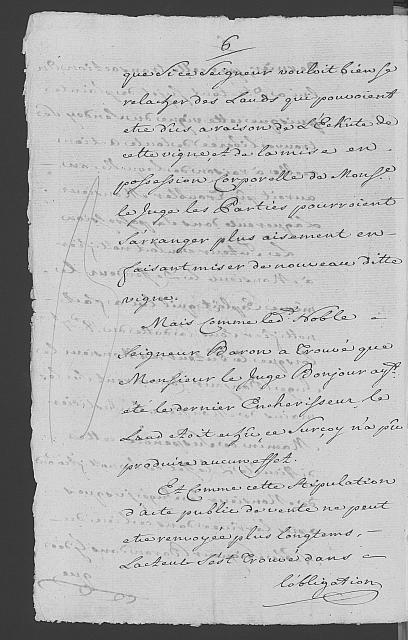 6
que si ce Seigneur vouloit bien se
relacher des Lauds qui pouvoient
etre dus a raison de l'Echute de
cette vigne et de la mise en
possession Corporelle de Monsr.
le Juge les Parties pourroient
s'arranger plus aisement en
faisant miser de nouveau ditte
vigne.
Mais comme led. Noble
Seigneur Baron a trouvé que
Monsieur le Juge Bonjour ayt.
été le dernier Encherisseur le
Laud etoit echu, ce Surcoy n'a pu
produire aucun effet.
Et comme cette Stipulation
d'acte public de vente ne peut
etre renvoyée plus longtems,
L'acteur s'est trouvé dans
l'obligation